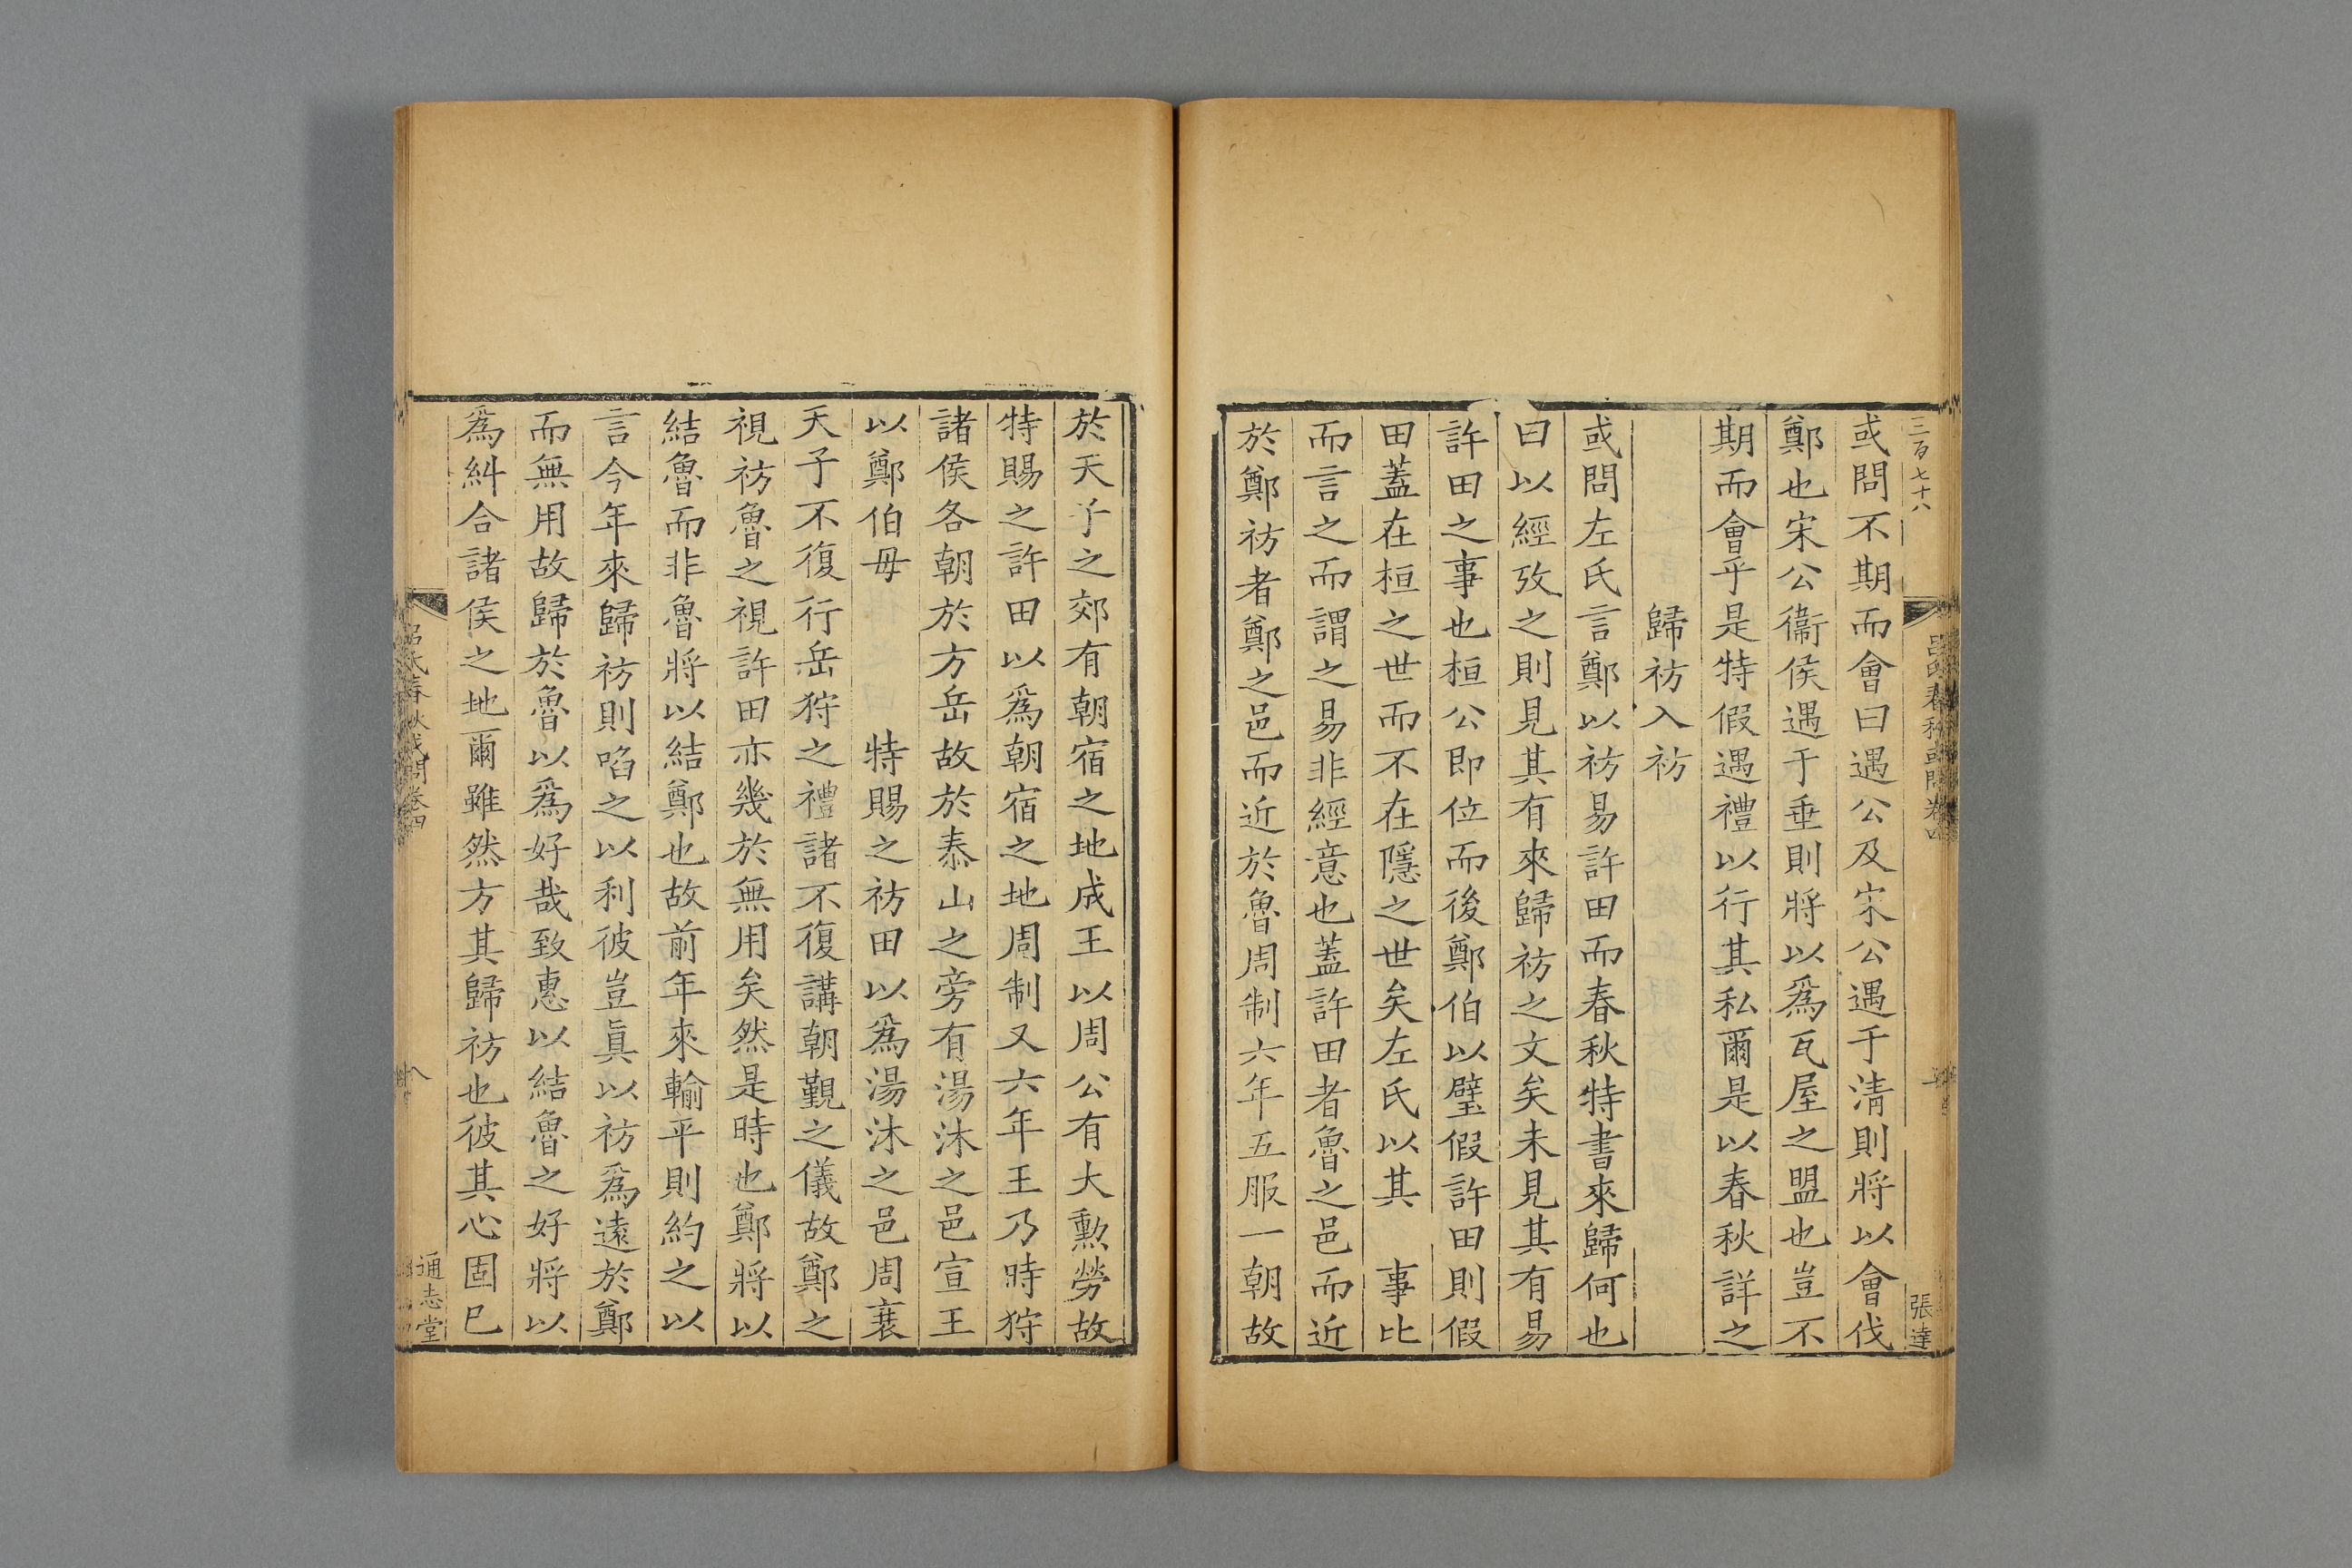 三百七十八
張達
或問不期而會曰遇公及宋公遇于清則將以會伐
鄭也宋公衞侯遇于垂則將以爲瓦屋之盟也豈不
期而會乎是特假遇禮以行其私爾是以春秋詳之
歸祊入祊
或問左氏言鄭以祊易許田而春秋特書來歸何也
曰以經攷之則見其有來歸祊之文矣未見其有易
許田之事也桓公即位而後鄭伯以璧假許田則假
田蓋在桓之世而不在隱之世矣左氏以其　事比
而言之而謂之易非經意也蓋許田者魯之邑而近
於鄭祊者鄭之邑而近於魯周制六年五服一朝故
於天子之郊有朝宿之地成王以周公有大勲勞故
特賜之許田以爲朝宿之地周制又六年王乃時狩
諸侯各朝於方岳故於泰山之旁有湯沐之邑宣王
以鄭伯母　　　特賜之祊田以爲湯沐之邑周衰
天子不復行岳狩之禮諸不復講朝覲之儀故鄭之
視祊魯之視許田亦幾於無用矣然是時也鄭將以
結魯而非魯將以結鄭也故前年來輸平則約之以
言今年來歸祊則啗之以利彼豈眞以祊爲遠於鄭
而無用故歸於魯以爲好哉致惠以結魯之好將以
爲糾合諸侯之地爾雖然方其歸祊也彼其心固已
呂氏春秋或問卷四
八
通志堂